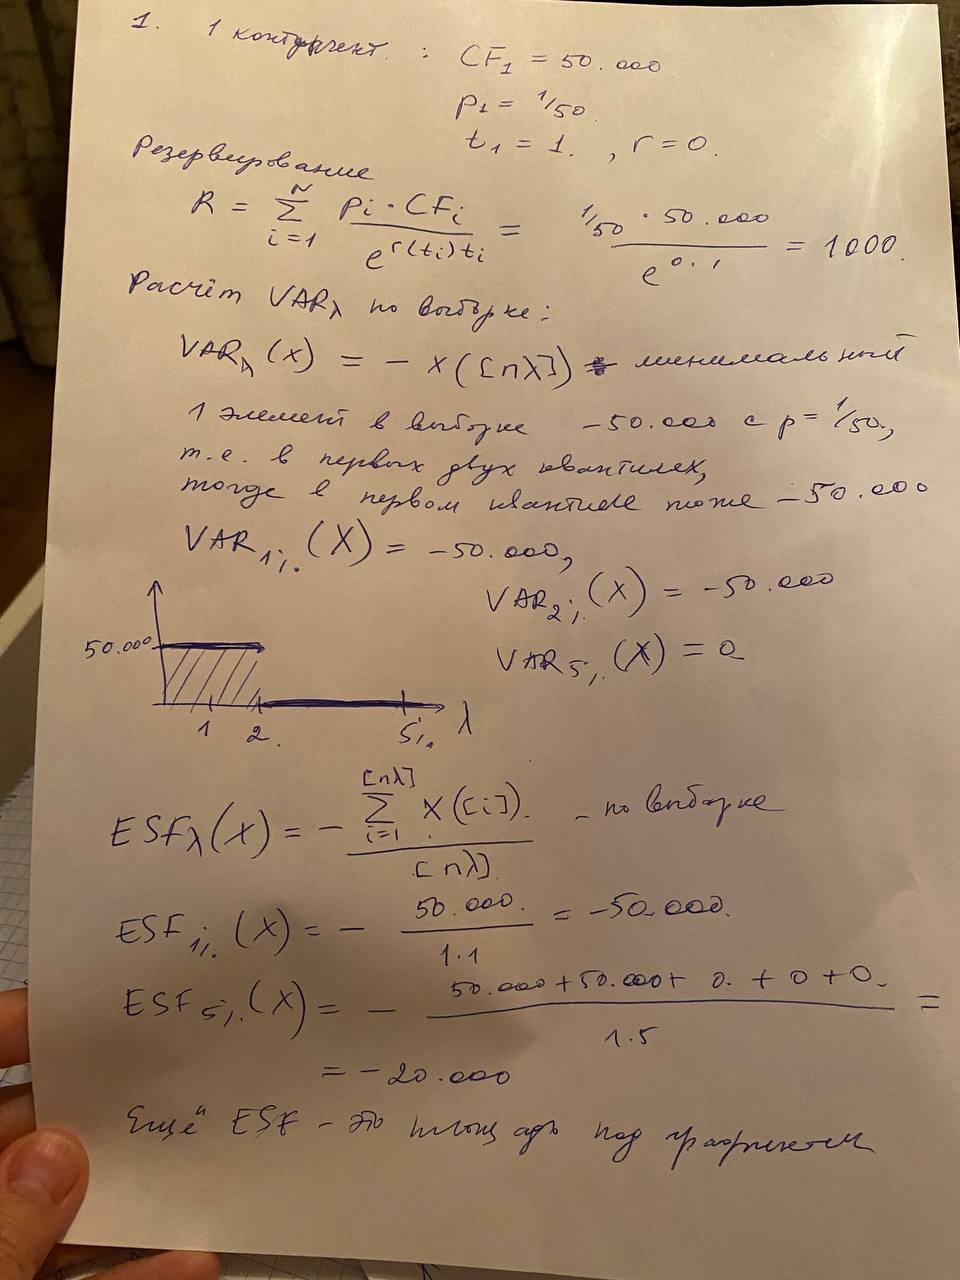 1. 1 контрагент : CF₁ = 50.000
p₁ = 1/50.
t₁ = 1. , r = 0.
Резервирование
R = ∑ᵢ₌₁ᴺ (pᵢ · CFᵢ) / e^(r(tᵢ)tᵢ) = (1/50 · 50.000) / e^(0·1) = 1000.
Расчёт VARλ по выборке:
VARλ(X) = - X([nλ]) минимальный
1 элемент в выборке -50.000 с p = 1/50,
т.е. в первых двух квантилех,
тогде в первом квантиле тоже -50.000
VAR₁%(X) = -50.000,
VAR₂%(X) = -50.000
VAR₅%(X) = 0
50.000
1 2. 5%. λ
ESFλ(X) = - (∑ᵢ₌₁^[nλ] X([i])) / [nλ] - по выборке
ESF₁%(X) = - 50.000. / 1·1 = -50.000.
ESF₅%(X) = - (50.000 + 50.000 + 0. + 0 + 0.) / 1·5 =
= -20.000
Ещё ESF - это площадь под графиком